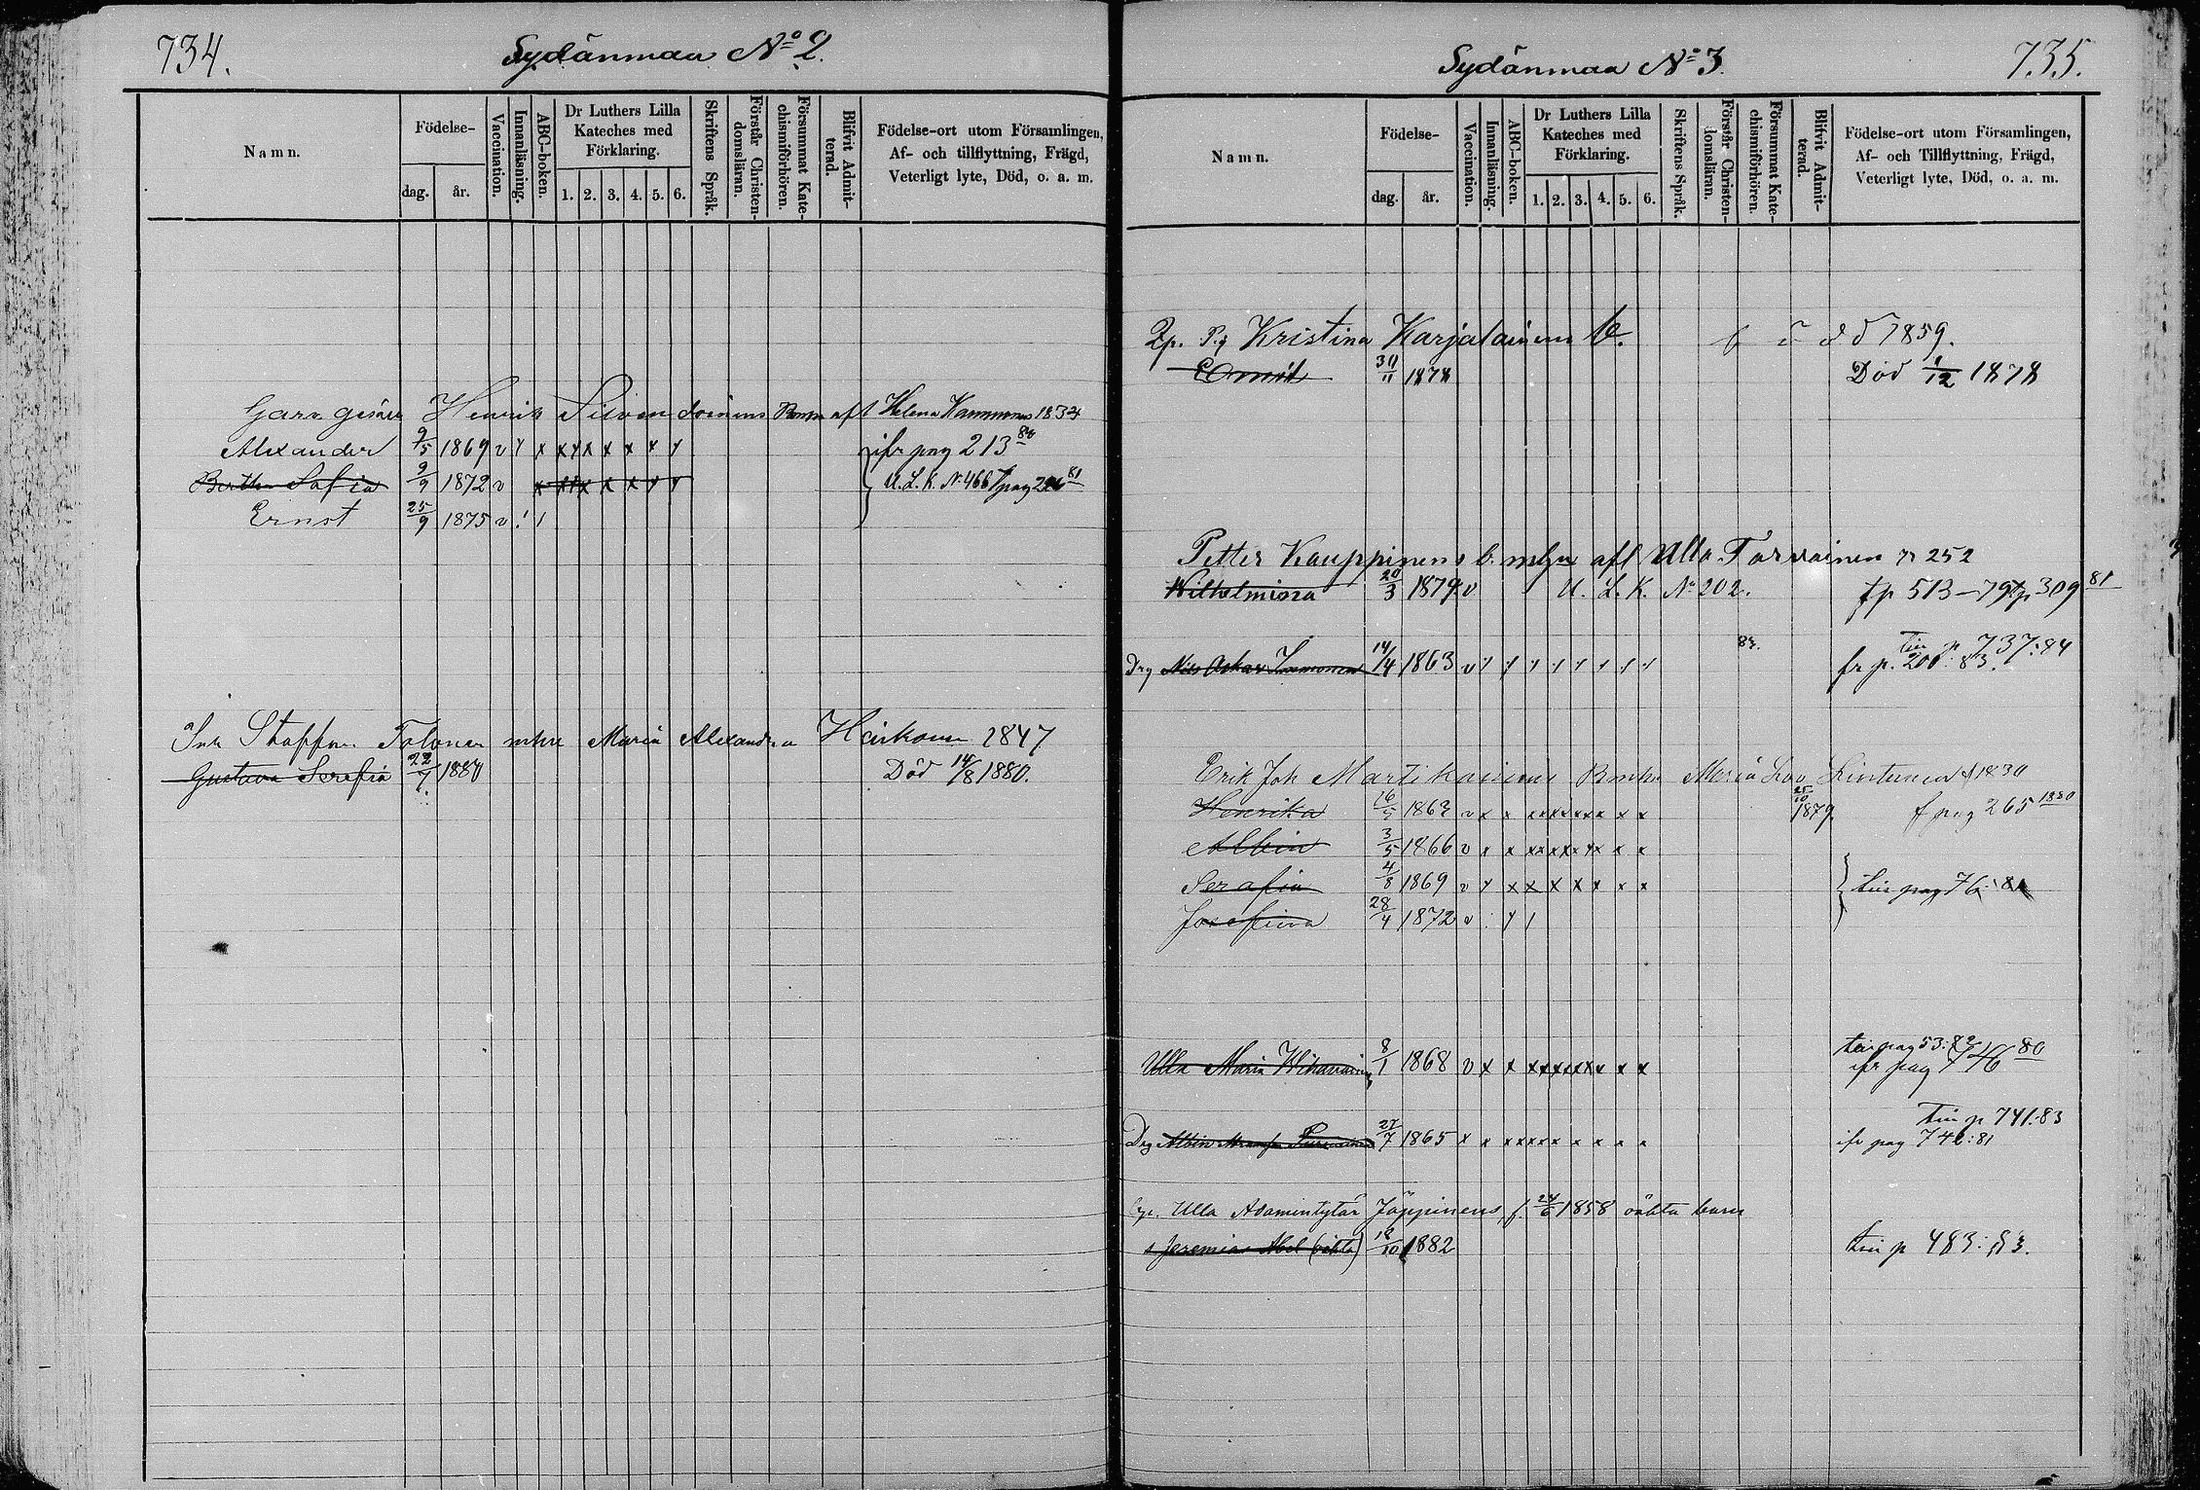 734.
Sydänmaa No 2.
Namn.
Födelse-
dag. år.
Vaccination.
Innanläsning.
ABC-boken.
Dr Luthers Lilla Kateches med Förklaring.
1. 2. 3. 4. 5. 6.
Skriftens Språk.
Förstår Christendomsläran.
Försummat Katechismiförhören.
Blifvit Admitterad.
Födelse-ort utom Församlingen, Af- och tillflyttning, Frägd, Veterligt lyte, Död, o. a. m.
Henrik Helena 1834
Alexander 9/5 1869 v x x x x x x x ifr pag 213
Sofia 9/9 1872 v x x x x x x x U. L. K. No 466 81
Ernst 25/9 1875 v
Staffan Tolonen Maria Alexandra 1847
Gustava Serafia 22/7 1880 Död 14/8 1880.
735.
Sydänmaa No 3.
Namn.
Födelse-
dag. år.
Vaccination.
Innanläsning.
ABC-boken.
Dr Luthers Lilla Kateches med Förklaring.
1. 2. 3. 4. 5. 6.
Skriftens Språk.
Förstår Christendomsläran.
Försummat Katechismiförhören.
Blifvit Admitterad.
Födelse-ort utom Församlingen, Af- och Tillflyttning, Frägd, Veterligt lyte, Död, o. a. m.
Kristina Karjalainens b. 1859.
30/11 1878 Död 1/12 1878
Petter Kauppinens b. m hu afl Ulla Tarvainen 252
Wilhelmina 20/3 1879 v U. L. K. No 202. fp 513-79 309 81
83. tin p. 737:84
Drg Nils Oskar Immonen 14/4 1863 v fr p. 83.
Erik Joh Martikainens Maria Lov. 1830
Henrika 1863 v x x x x x x x x 25/10 1879. f pag 265 1880
Albin 3/5 1866 v x x x x x x x x
Serafia 4/8 1869 v x x x x x x x tin pag
Josefina 28/4 1872 v
tin pag 53:82
Ulla Maria 8/1 1868 v x x x x x x x x ifr pag 746 80
tin p 741:83
Drg Albin 27/7 1865 x x x x x x x x ifr pag 742:81
Ulla Adamintytär Jäppinens, f. 24/6 1858 oäkta barn
s Jeremias Abel (oäkta) 18/10 1882 tin p 483:83.